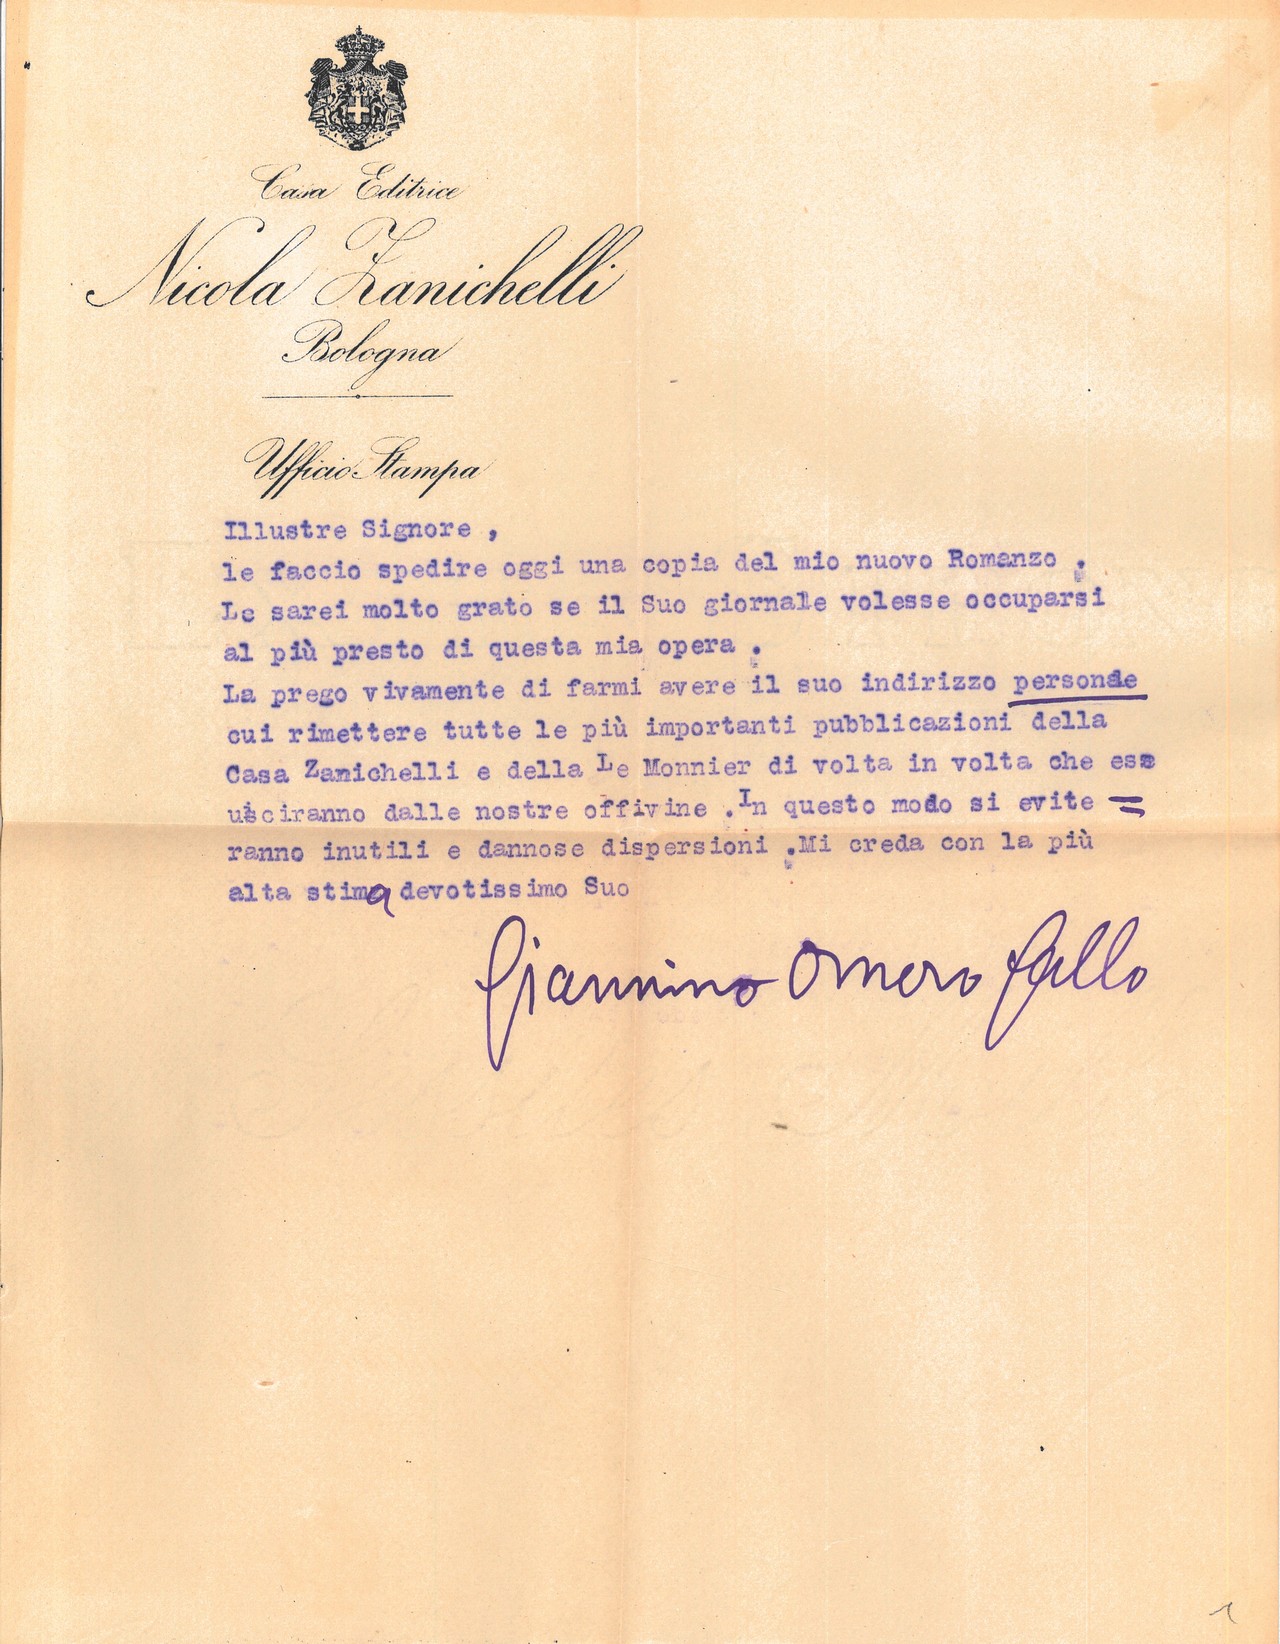 Casa Editrice
Nicola Zanichelli
Bologna
Ufficio Stampa
Illustre Signore ,
le faccio spedire oggi una copia del mio nuovo Romanzo .
Le sarei molto grato se il Suo giornale volesse occuparsi
al più presto di questa mia opera .
La prego vivamente di farmi avere il suo indirizzo
cui rimettere tutte le più importanti pubblicazioni della
Casa Zanichelli e della Le Monnier di volta in volta che
usciranno dalle nostre offivine .In questo modo si evite =
ranno inutili e dannose dispersioni .Mi creda con la più
alta stima devotissimo Suo
Giannino Omero Gallo
1